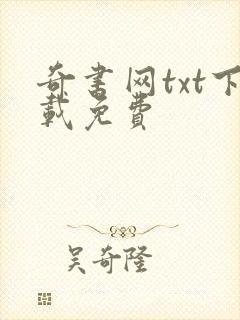 奇书网txt下
载免费
吴奇隆